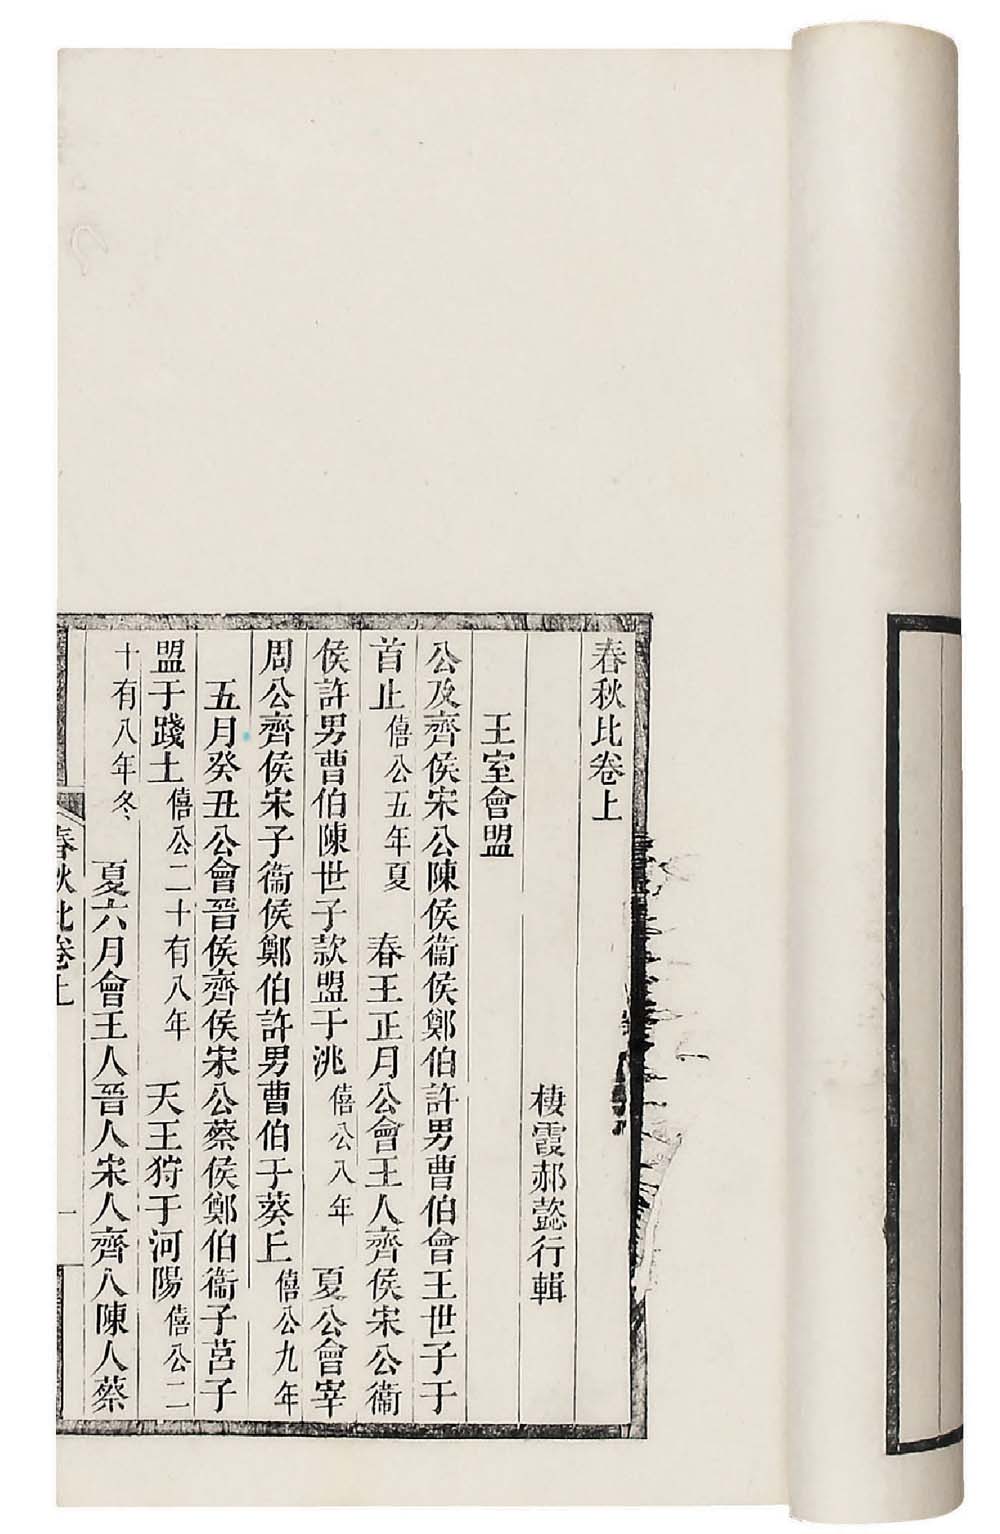 春秋比卷上
棲霞郝懿行輯
王室會盟
公及齊侯宋公陳侯衞侯鄭伯許男曹伯會王世子于
首止僖公五年夏　春王正月公會王人齊侯宋公衞
侯許男曹伯陳世子款盟于洮僖公八年　夏公會宰
周公齊侯宋子衞侯鄭伯許男曹伯于葵丘僖公九年
五月癸丑公會晉侯齊侯宋公蔡侯鄭伯衞子莒子
盟于踐土僖公二十有八年　天王狩于河陽僖公二
十有八年冬　夏六月會王人晉人宋人齊人陳人蔡
春秋比卷上
一